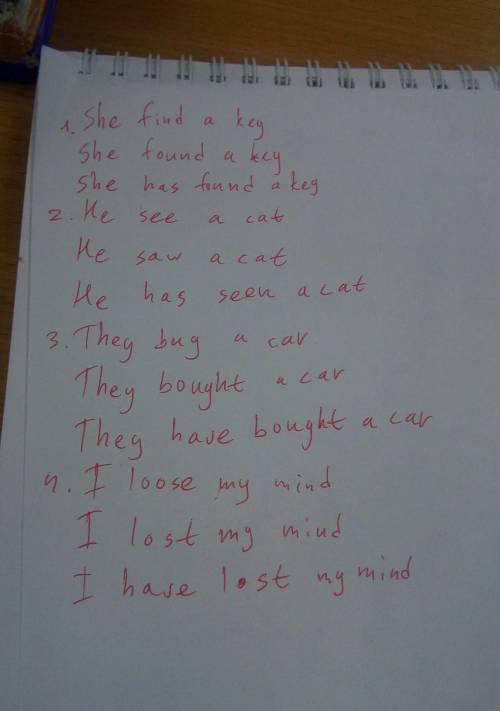 1. She find a key
She found a key
She has found a key
2. He see a cat
He saw a cat
He has seen a cat
3. They buy a car
They bought a car
They have bought a car
4. I loose my mind
I lost my mind
I have lost my mind